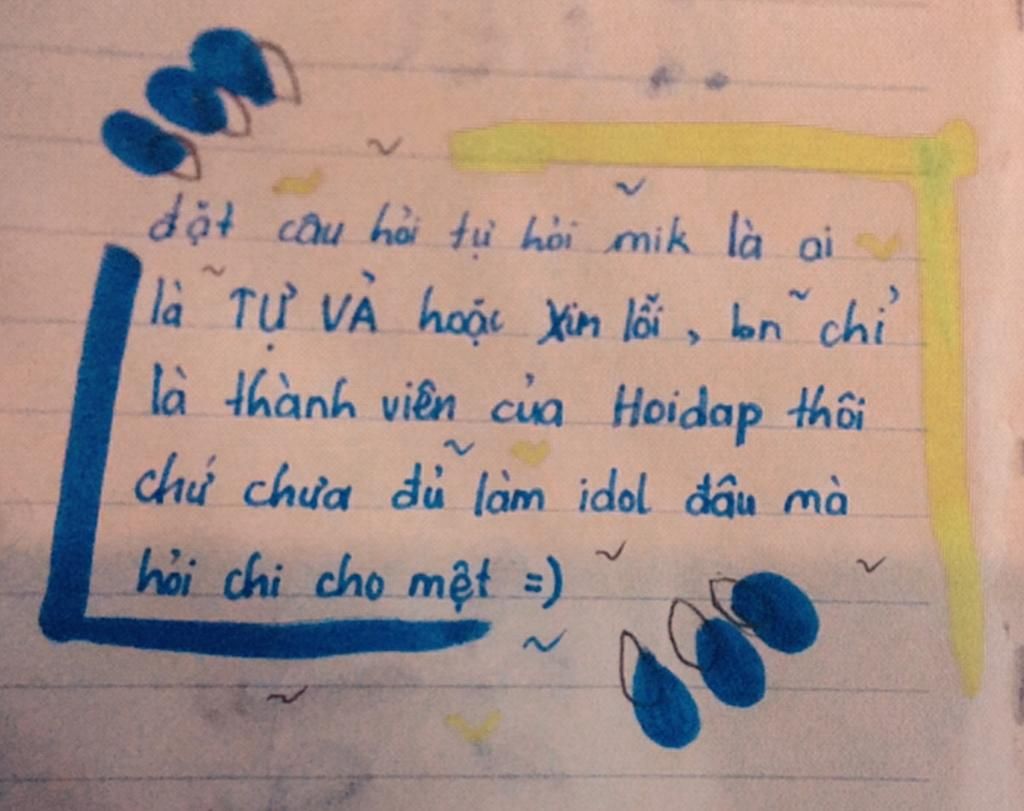 đặt câu hỏi tự hỏi mik là ai
là TỰ VẢ hoặc xin lỗi, bn chỉ
là thành viên của Hoidap thôi
chứ chưa đủ làm idol đâu mà
hỏi chi cho mệt =)